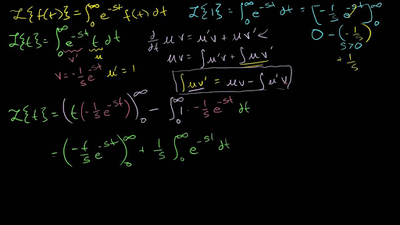 ℒ{f(t)} = ∫₀^∞ e^{-st} f(t) dt
ℒ{1} = ∫₀^∞ e^{-st} dt = [-1/s e^{-st}]₀^∞
0 - (-1/s)
s>0
+ 1/s
ℒ{t} = ∫₀^∞ e^{-st} t dt
v' u
v = -1/s e^{-st} u' = 1
d/dt uv = u'v + uv' <
uv = ∫u'v + ∫uv'
∫uv' = uv - ∫u'v
ℒ{t} = (t(-1/s e^{-st}))₀^∞ - ∫₀^∞ 1·-1/s e^{-st} dt
= (-t/s e^{-st})₀^∞ + 1/s ∫₀^∞ e^{-st} dt